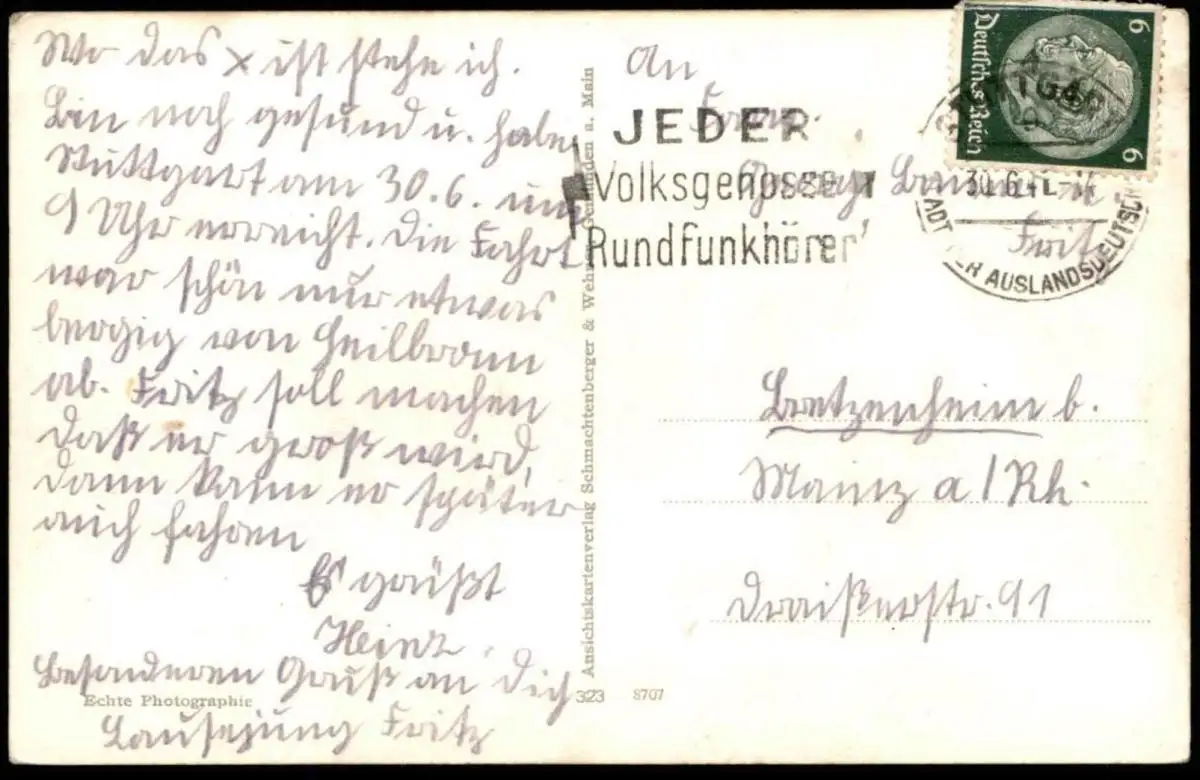 Wo das x ist stehe ich.
Bin noch gesund u. habe
Stuttgart am 30.6. um
9 Uhr erreicht. Die Fahrt
war schön nur etwas
bergig von Heilbronn
ab. Fritz soll machen
daß er groß wird,
dann kann er später
auch fahren
Es grüßt
Heinz.
Besonderen Gruß an Dich
Lausejung Fritz
Echte Photographie
Ansichtskartenverlag Schmachtenberger & a. Main
323 8707
An
JEDER
Volksgenosse
Rundfunkhörer
Deutsches Reich
6
6
30.6.41
AUSLANDSDEUTSCH
Fritz
Bretzenheim b.
Mainz a/Rh.
Draißerstr. 91